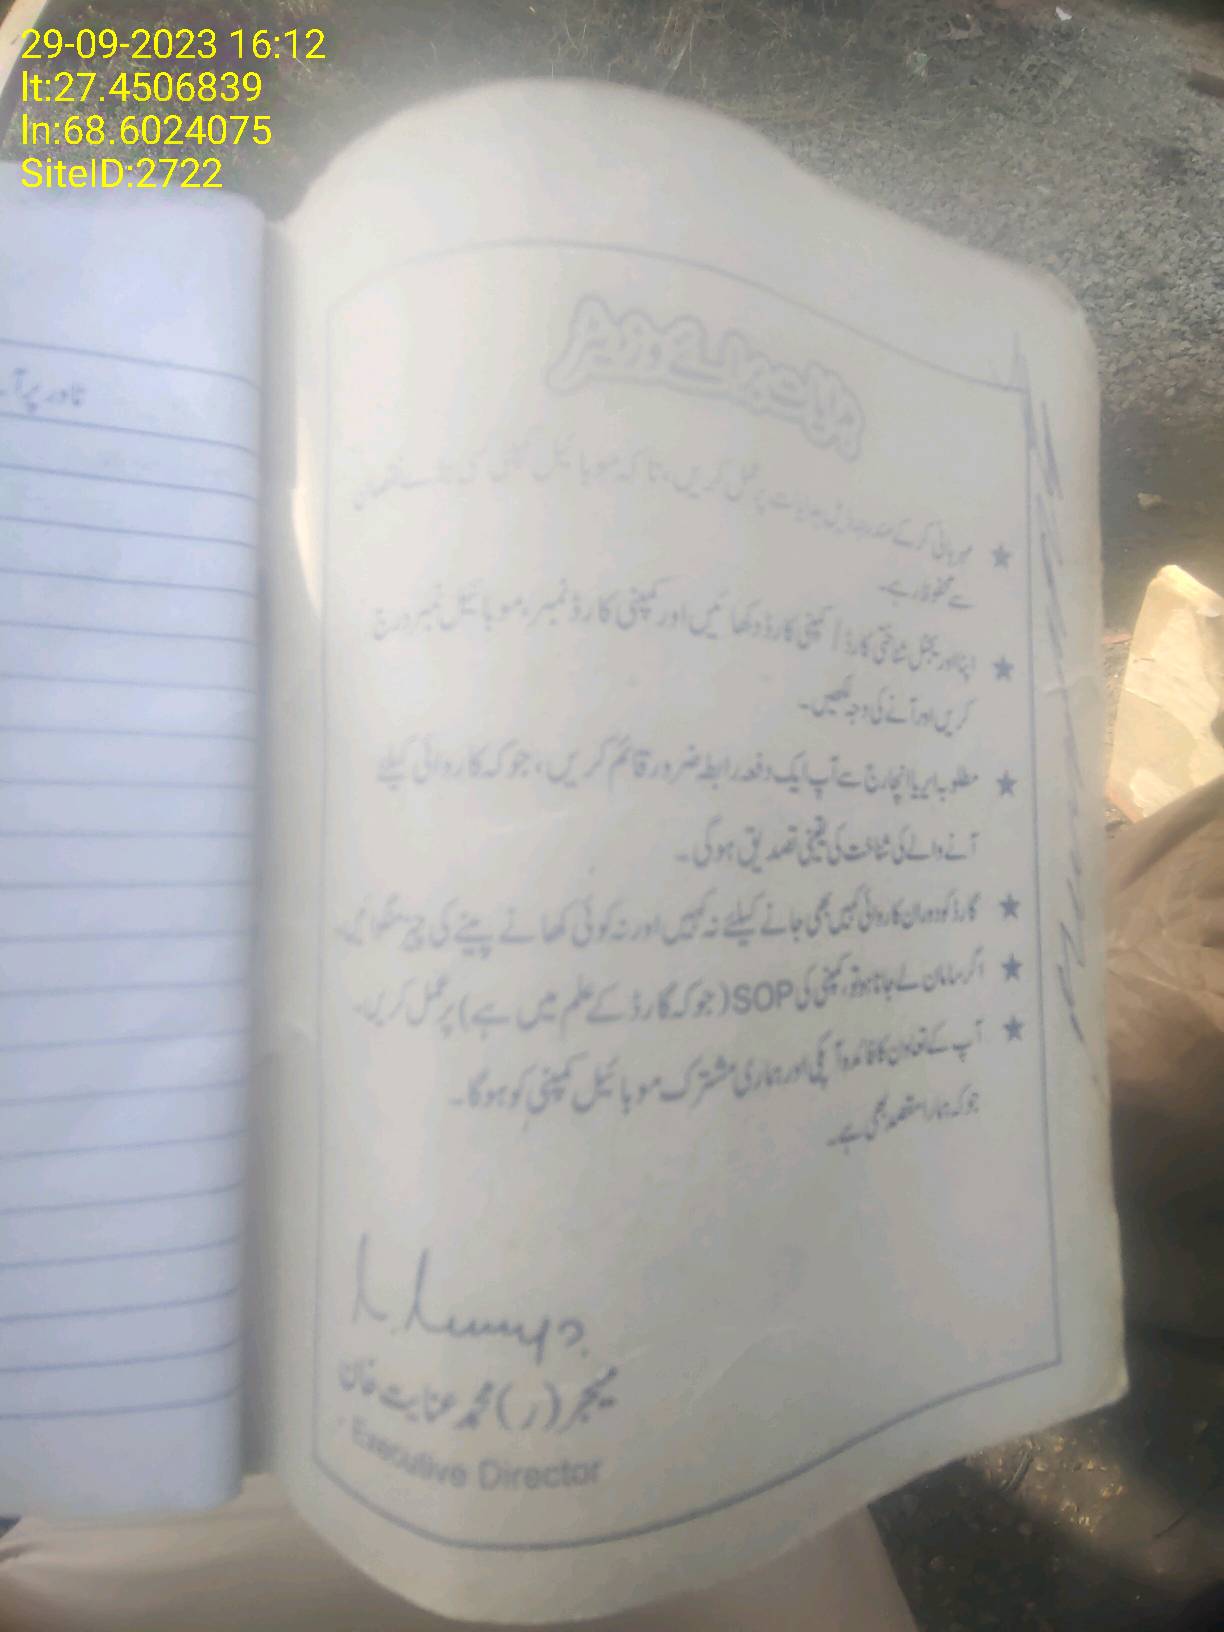 29-09-2023 16:12
lt:27.4506839
ln:68.6024075
SiteID:2722
ٹاور پر آ
ہدایات برائے وزیٹر
★ مہربانی کر کے مندرجہ ذیل ہدایات پر عمل کریں، تا کہ موبائیل کمپنی کی
سے محفوظ رہے۔
★ اپنا اوریجنل شناختی کارڈ / کمپنی کارڈ دکھائیں اور کمپنی کارڈ نمبر، موبائیل نمبر درج
کریں اور آنے کی وجہ لکھیں۔
★ مطلوبہ ایریا انچارج سے آپ ایک دفعہ رابطہ ضرور قائم کریں، جو کہ کاروائی کیلئے
آنے والے کی شناخت کی یقینی تصدیق ہوگی۔
★ گارڈ کو دوران کاروائی کہیں بھی جانے کیلئے نہ کہیں اور نہ کوئی کھانے پینے کی چیز منگوائیں۔
★ اگر سامان لے جانا ہو تو، کمپنی کی SOP (جو کہ گارڈ کے علم میں ہے) پر عمل کریں۔
★ آپ کے تعاون کا فائدہ آپکی اور ہماری مشترک موبائیل کمپنی کو ہوگا۔
جو کہ ہمارا مقصد بھی ہے۔
میجر (ر) محمد عنایت خان
Executive Director